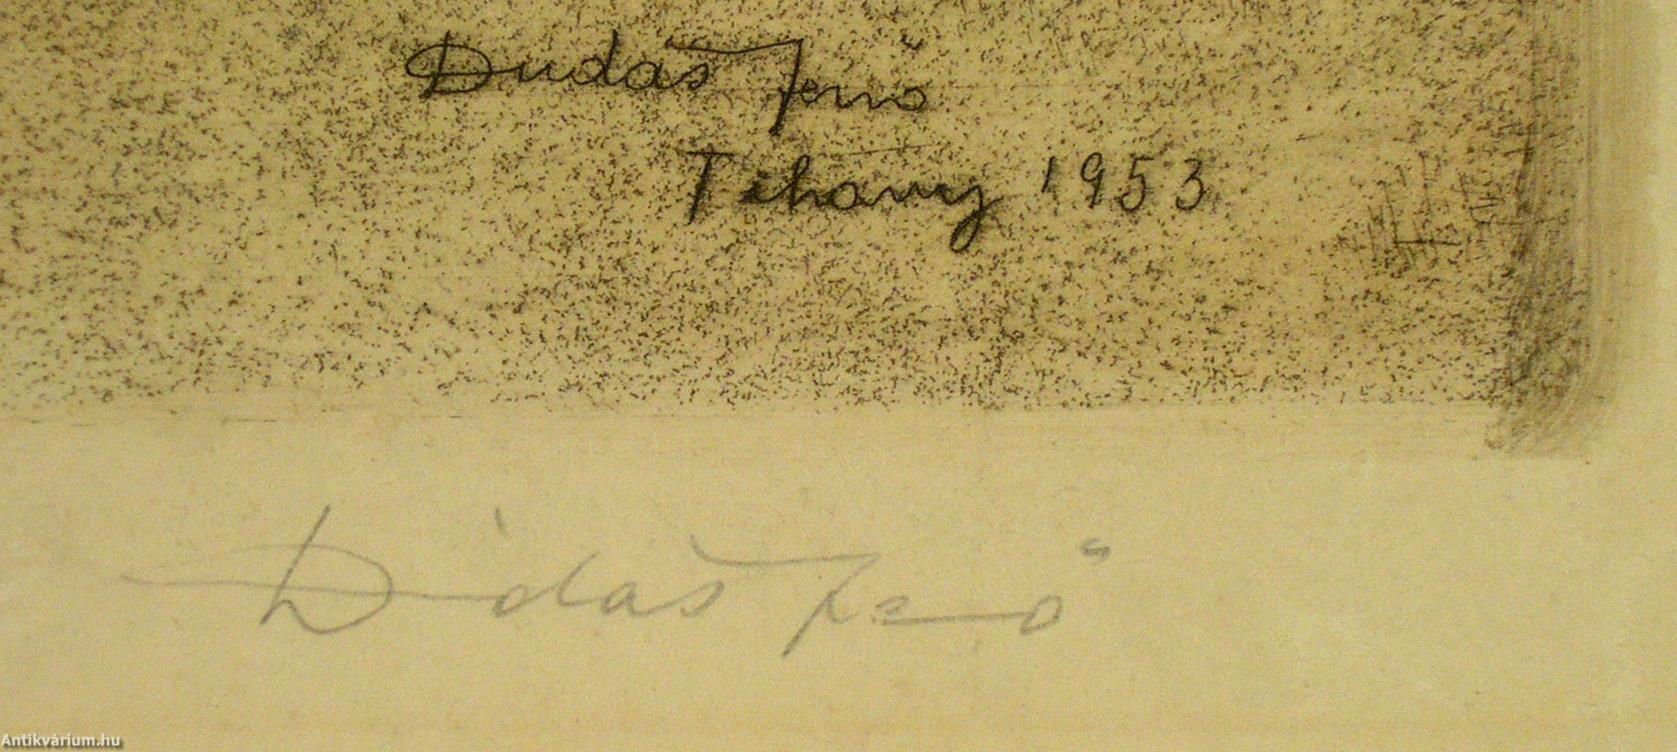 Dudás Jenő
Tihany 1953
Dudás Jenő
Antikvárium.hu